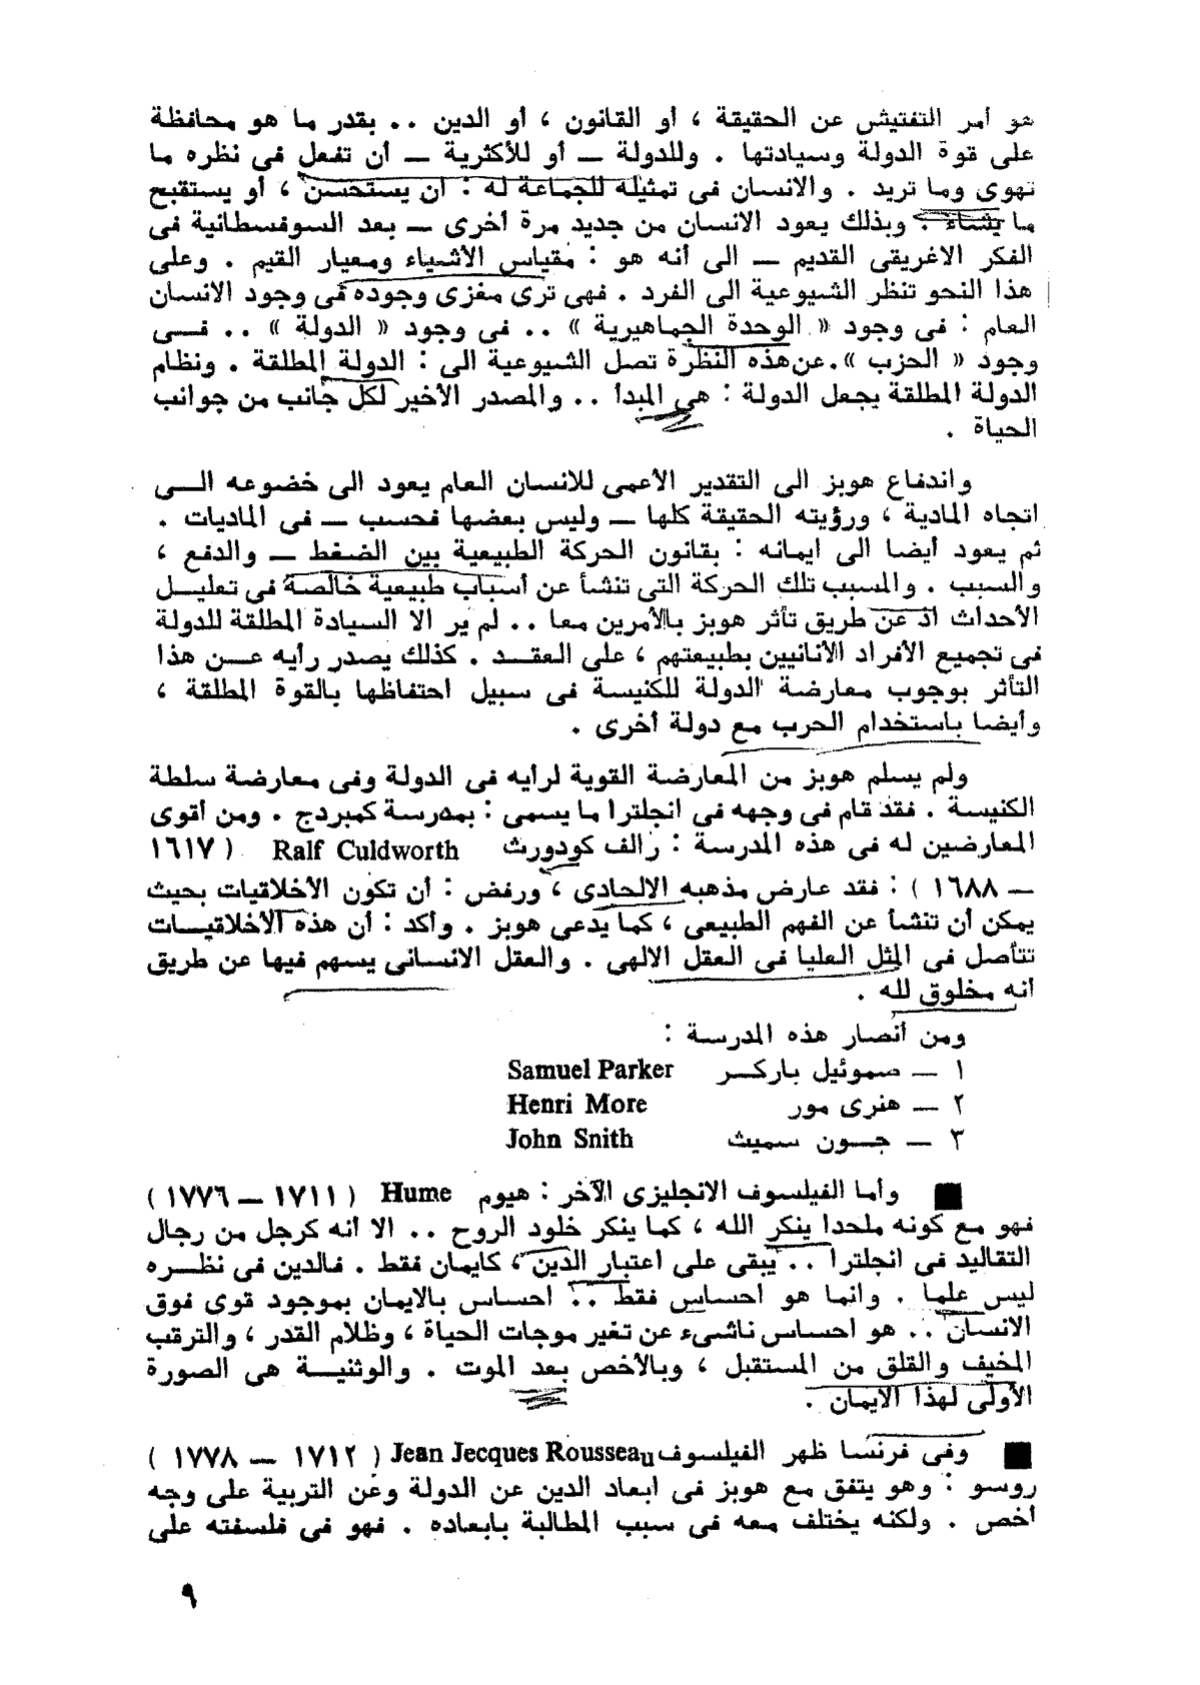 هو أمر التفتيش عن الحقيقة ، أو القانون ، أو الدين .. بقدر ما هو محافظة
على قوة الدولة وسيادتها . وللدولة ــ أو للأكثرية ــ أن تفعل فى نظره ما
تهوى وما تريد . والانسان فى تمثيله للجماعة له : أن يستحسن ، أو يستقبح
ما يشاء . وبذلك يعود الانسان من جديد مرة أخرى ــ بعد السوفسطائية فى
الفكر الاغريقى القديم ــ الى أنه هو : مقياس الأشياء ومعيار القيم . وعلى
هذا النحو تنظر الشيوعية الى الفرد . فهى ترى مغزى وجوده فى وجود الانسان
العام : فى وجود « الوحدة الجماهيرية » .. فى وجود « الدولة » .. فــى
وجود « الحزب ». عن هذه النظرة تصل الشيوعية الى : الدولة المطلقة . ونظام
الدولة المطلقة يجعل الدولة : هى المبدأ .. والمصدر الأخير لكل جانب من جوانب
الحياة .
واندفاع هوبز الى التقدير الأعمى للانسان العام يعود الى خضوعه الــى
اتجاه المادية ، ورؤيته الحقيقة كلها ــ وليس بعضها فحسب ــ فى الماديات .
ثم يعود أيضا الى ايمانه : بقانون الحركة الطبيعية بين الضغط ــ والدفع ،
والسبب . والمسبب تلك الحركة التى تنشأ عن أسباب طبيعية خالصة فى تعليــل
الأحداث اذ عن طريق تأثر هوبز بالأمرين معا .. لم ير الا السيادة المطلقة للدولة
فى تجميع الأفراد الأنانيين بطبيعتهم ، على العقــد . كذلك يصدر رأيه عــن هذا
التأثر بوجوب معارضة الدولة للكنيسة فى سبيل احتفاظها بالقوة المطلقة ،
وأيضا باستخدام الحرب مع دولة أخرى .
ولم يسلم هوبز من المعارضة القوية لرأيه فى الدولة وفى معارضة سلطة
الكنيسة . فقد قام فى وجهه فى انجلترا ما يسمى : بمدرسة كمبردج . ومن أقوى
المعارضين له فى هذه المدرسة : رالف كودورث Ralf Culdworth ( ١٦١٧
ــ ١٦٨٨ ) : فقد عارض مذهبه الالحادى ، ورفض : أن تكون الأخلاقيات بحيث
يمكن أن تنشأ عن الفهم الطبيعى ، كما يدعى هوبز . وأكد : أن هذه الأخلاقيــات
تتأصل فى المثل العليا فى العقل الالهى . والعقل الانسانى يسهم فيها عن طريق
أنه مخلوق لله .
ومن أنصار هذه المدرسة :
١ ــ صموئيل باركــر Samuel Parker
٢ ــ هنرى مور Henri More
٣ ــ جــون سميث John Snith
■ وأما الفيلسوف الانجليزى الآخر : هيوم Hume ( ١٧١١ ــ ١٧٧٦ )
فهو مع كونه ملحدا ينكر الله ، كما ينكر خلود الروح .. الا أنه كرجل من رجال
التقاليد فى انجلترا .. يبقى على اعتبار الدين ، كايمان فقط . فالدين فى نظــره
ليس علما . وانما هو احساس فقط .. احساس بالايمان بموجود قوى فوق
الانسان .. هو احساس ناشىء عن تغير موجات الحياة ، وظلام القدر ، والترقب
المخيف والقلق من المستقبل ، وبالأخص بعد الموت . والوثنيــة هى الصورة
الأولى لهذا الايمان .
■ وفى فرنسا ظهر الفيلسوف Jean Jecques Rousseau ( ١٧١٢ ــ ١٧٧٨ )
روسو : وهو يتفق مع هوبز فى ابعاد الدين عن الدولة وعن التربية على وجه
أخص . ولكنه يختلف معه فى سبب المطالبة بابعاده . فهو فى فلسفته على
٩